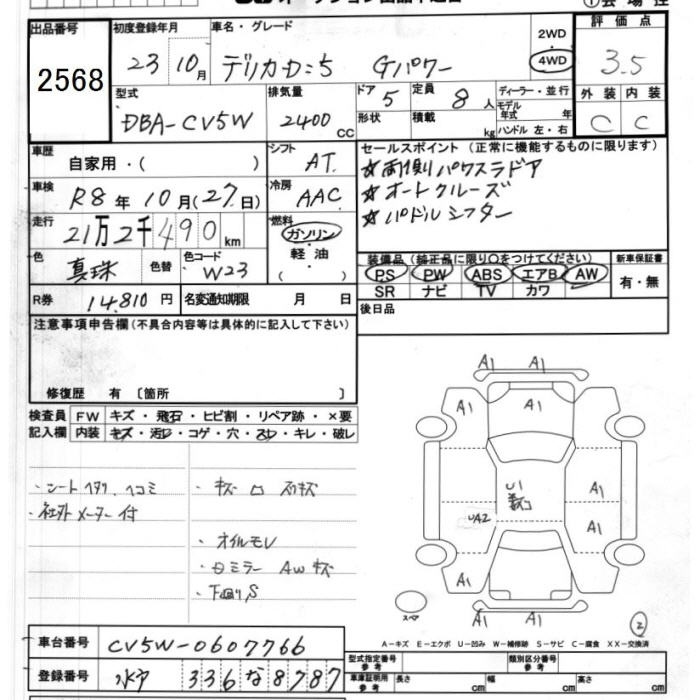 出品番号
2568
初度登録年月
23 10月
車名・グレード
デリカD:5 Gパワー
2WD
4WD
評価点
3.5
外装 内装
C C
型式
DBA-CV5W
排気量
2400 CC
ドア 5
形状
定員 8 人
積載 kg
ディーラー・並行
モデル年式 年
ハンドル 左・右
車歴
自家用・( )
シフト
AT
車検
R8年10月(27日)
冷房
AAC
走行
21万2千490km
燃料
ガソリン
軽油
( )
色
真珠
色替
色コード
W23
R券
14,810円
名変通知期限 月 日
セールスポイント(正常に機能するものに限ります)
☆両側パワスラドア
☆オートクルーズ
☆パドルシフター
装備品(純正品に限り○をつけてください)
PS PW ABS エアB AW
SR ナビ TV カワ
新車保証書
有・無
後日品
注意事項申告欄(不具合内容等は具体的に記入して下さい)
修復歴 有 〔箇所 〕
検査員記入欄
FW キズ・飛石・ヒビ割・リペア跡・×要
内装 キズ・汚レ・コゲ・穴・スレ・キレ・破レ
・シートヘタリ、ヘコミ
・社外メーター付
・オイルモレ
・ミラー AWキズ
・下回りS
A1 A1
A1 A1 A1
U1
A1
UA2
A1
A1 A1
A1 A1
スペア
2
A-キズ E-エクボ U-凹み W-補修跡 S-サビ C-腐食 XX-交換済
車台番号
CV5W-0607766
登録番号
水戸 336な8787
型式指定番号
参考
類別区分番号
参考
車庫証明用
参考
長さ cm
幅 cm
高さ cm